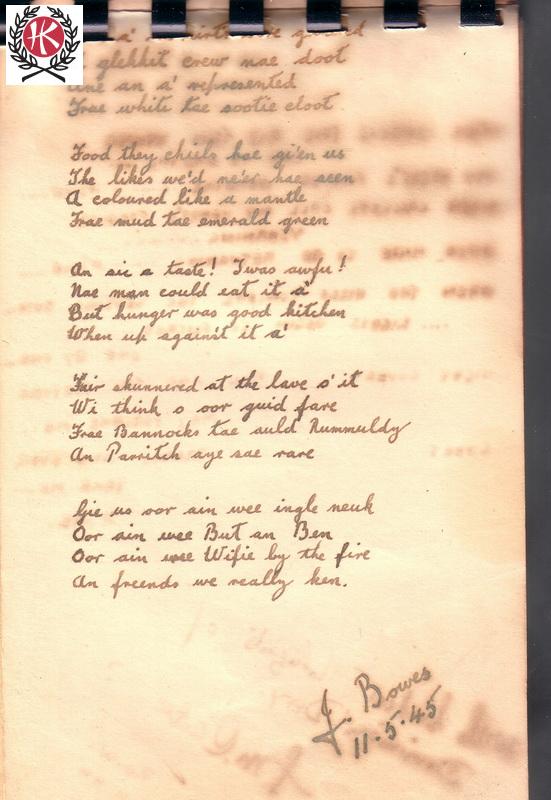 HK
a'
glekkit crew nae doot
Ane an a' represented
Frae white tae sootie cloot
Food they chiels hae gi'en us
The likes we'd ne'er hae seen
A coloured like a mantle
Frae mud tae emerald green
An sic a taste! Twas awfu!
Nae man could eat it a'
But hunger was good kitchen
When up again'st it a'
Fair skunnered at the lave o' it
Wi think o oor guid fare
Frae Bannocks tae auld Rummuldy
An Parritch aye sae rare
Gie us oor ain wee ingle neuk
Oor ain wee But an Ben
Oor ain wee Wifie by the fire
An freends we really ken.
J. Bowes
11.5.45